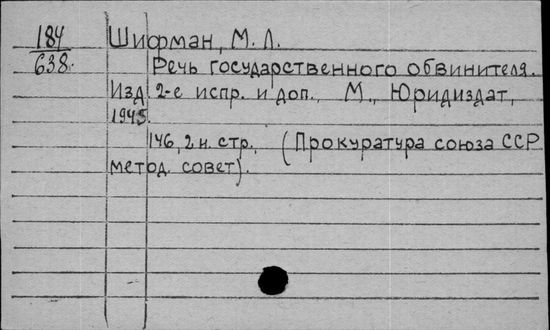 184 Шифман, М. Л.
638. Речь государственного обвинителя.
Изд 2-е испр. и доп., М., Юридиздат,
1945.
146, 2 н. стр., (Прокуратура союза ССР
метод. совет).